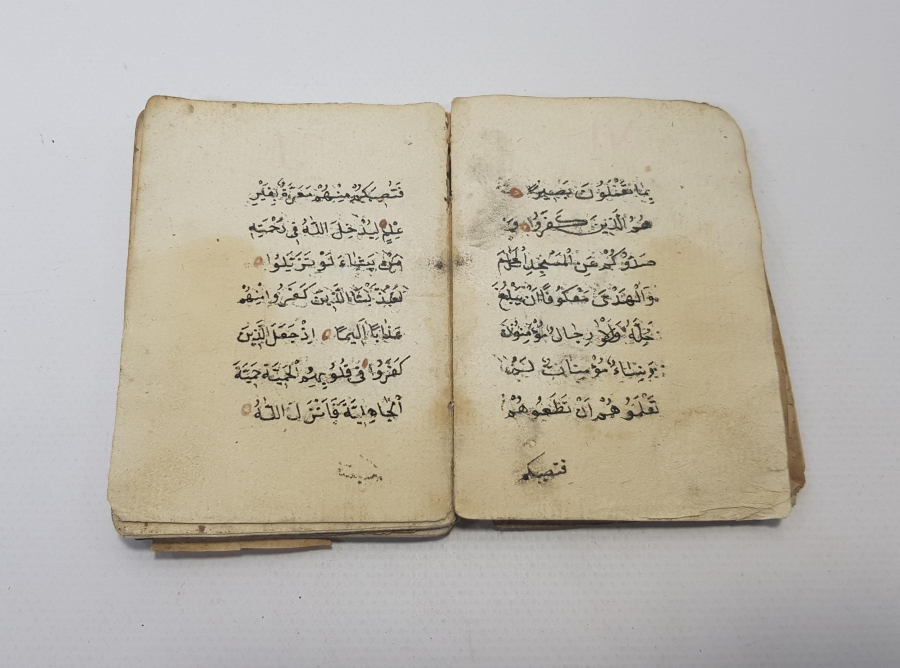 بِمَا تَعْمَلُونَ بَصِيرًا
هُمُ الَّذِينَ كَفَرُوا وَ
صَدُّوكُمْ عَنِ الْمَسْجِدِ الْحَرَامِ
وَالْهَدْيَ مَعْكُوفًا اَنْ يَبْلُغَ
مَحِلَّهُ وَلَوْلَا رِجَالٌ مُؤْمِنُونَ
وَنِسَاءٌ مُؤْمِنَاتٌ لَمْ
تَعْلَمُوهُمْ اَنْ تَطَئُوهُمْ
فتصيبكم
فَتُصِيبَكُمْ مِنْهُمْ مَعَرَّةٌ بِغَيْرِ
عِلْمٍ لِيُدْخِلَ اللّٰهُ فِي رَحْمَتِهِ
مَنْ يَشَاءُ لَوْ تَزَيَّلُوا
لَعَذَّبْنَا الَّذِينَ كَفَرُوا مِنْهُمْ
عَذَابًا اَلِيمًا اِذْ جَعَلَ الَّذِينَ
كَفَرُوا فِي قُلُوبِهِمُ الْحَمِيَّةَ حَمِيَّةَ
الْجَاهِلِيَّةِ فَاَنْزَلَ اللّٰهُ